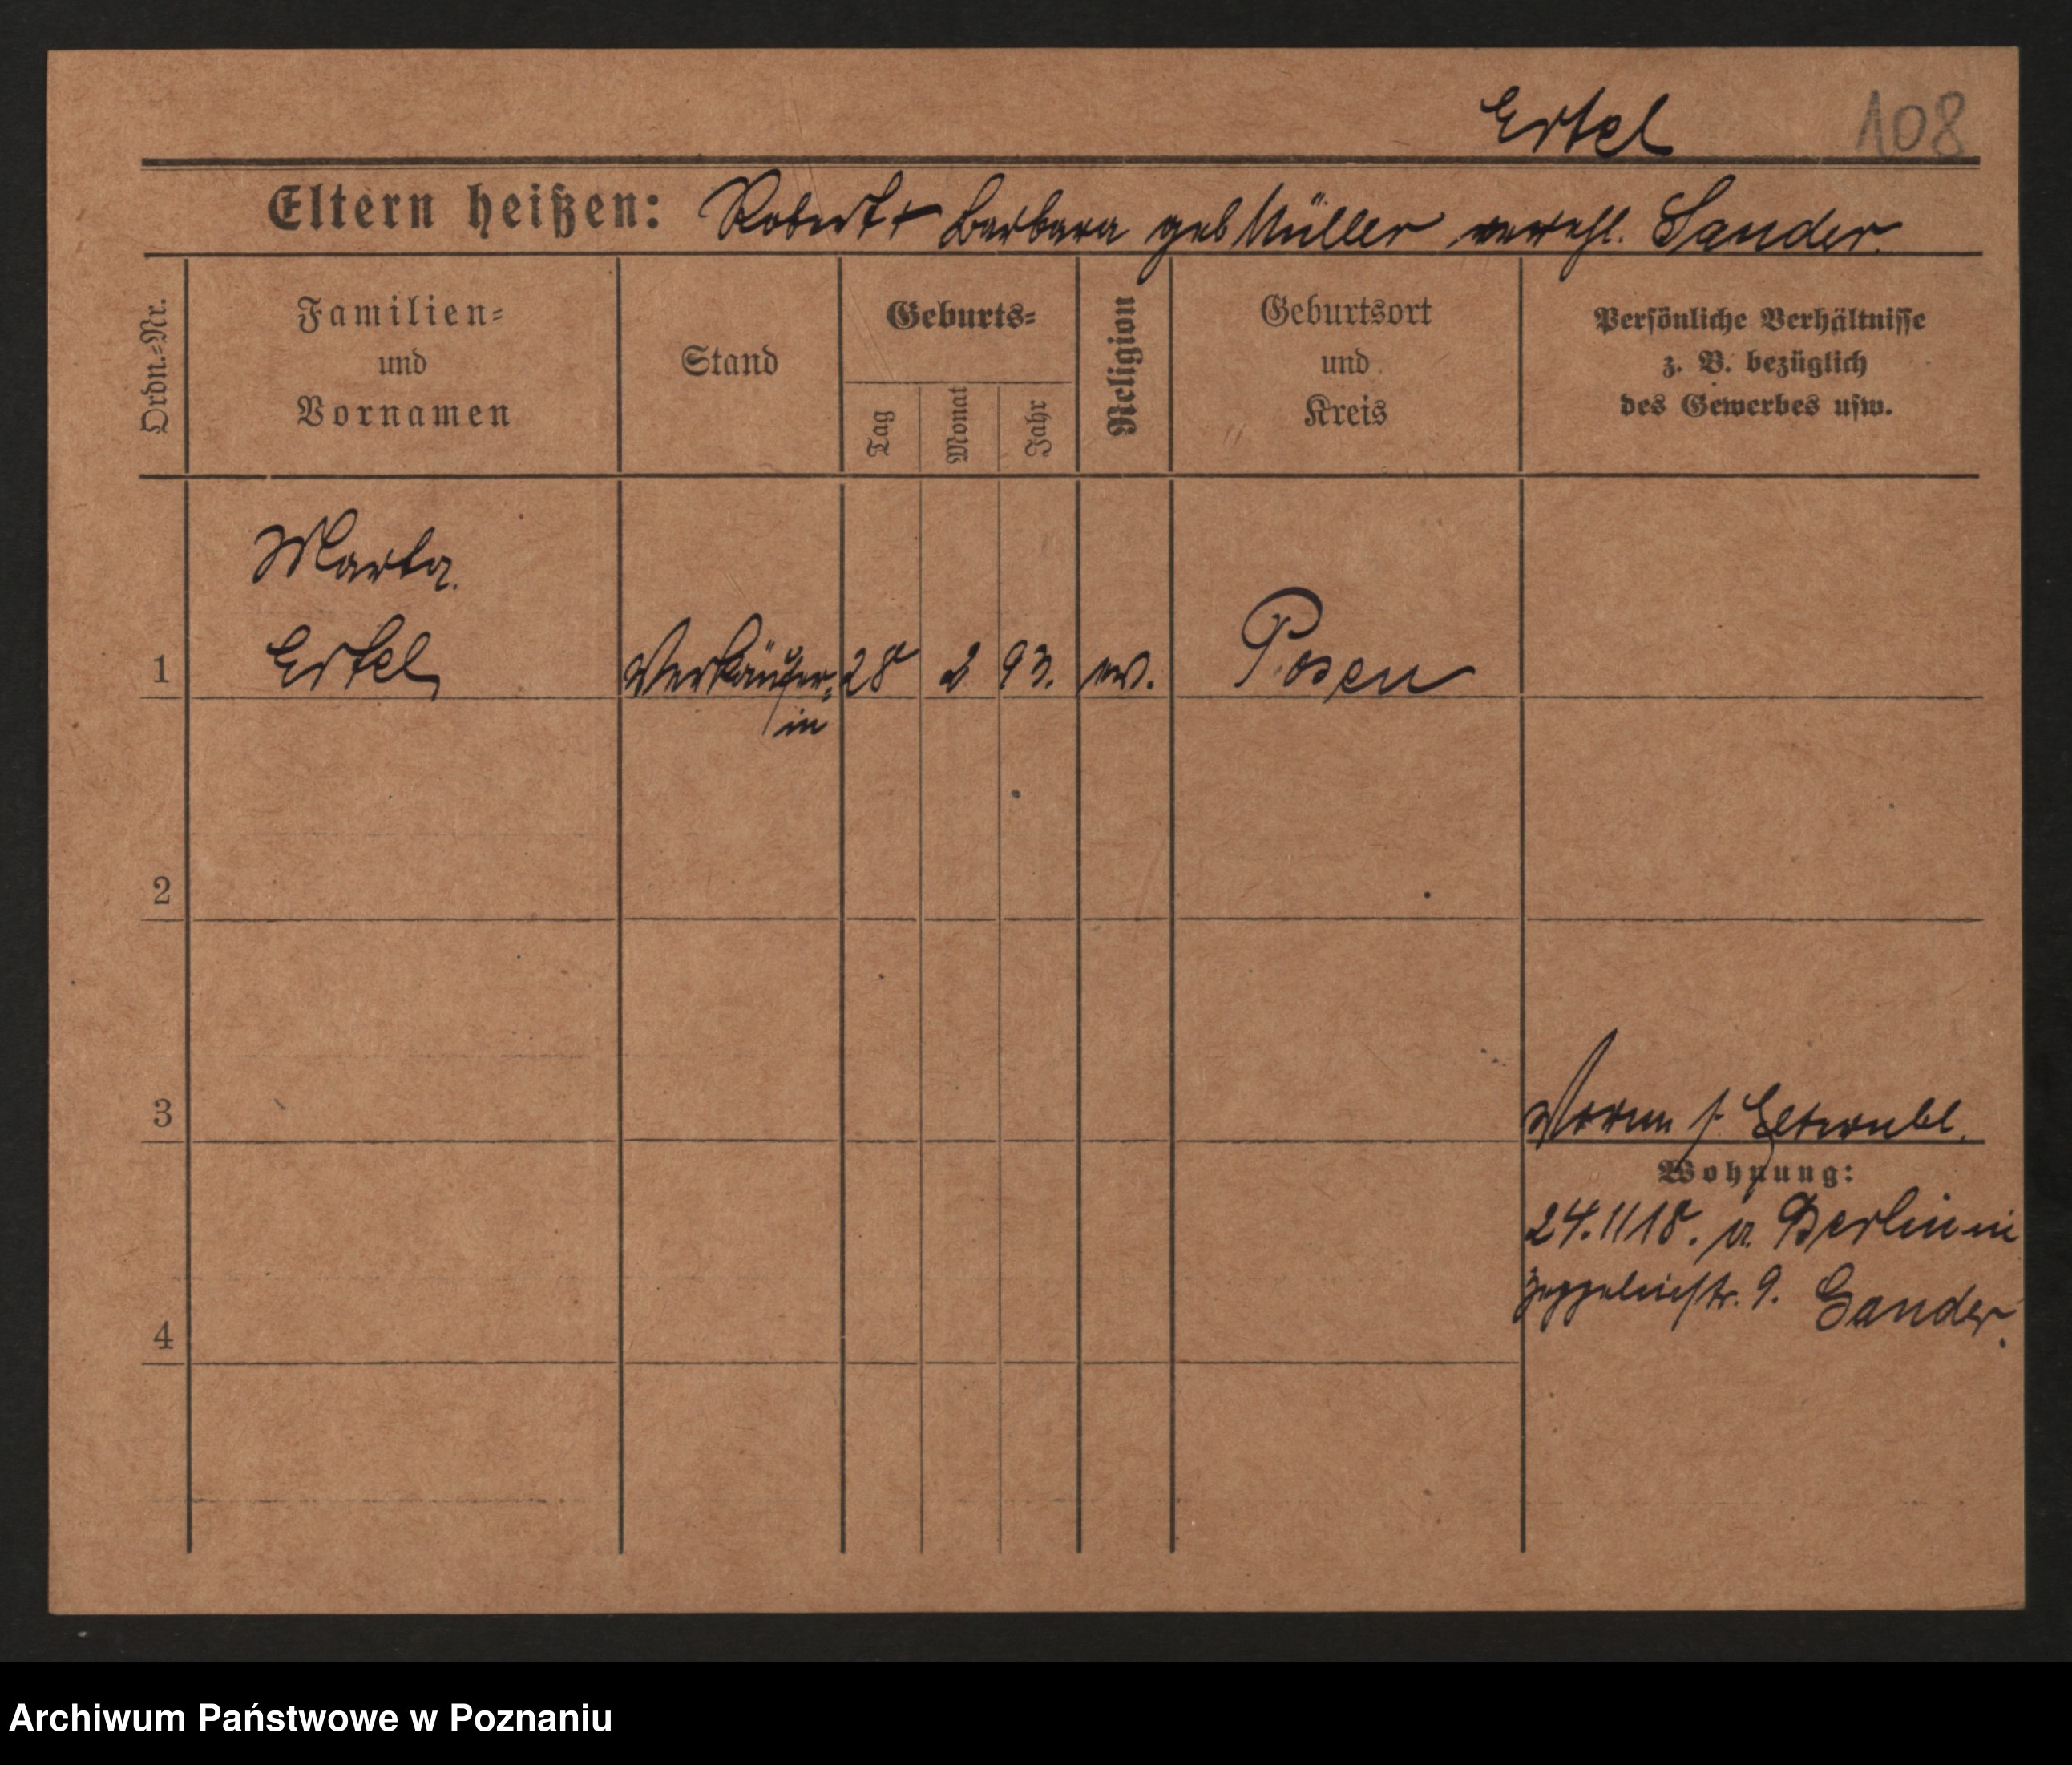 Ertel 108
Eltern heißen: Robert + Barbara geb Müller verehl. Sander.
Ordn.-Nr.
Familien-
und
Vornamen
Stand
Geburts-
Tag
Monat
Jahr
Religion
Geburtsort
und
Kreis
Persönliche Verhältnisse
z. B. bezüglich
des Gewerbes usw.
Marta
1 Ertel Verkäufer- 28 2 93. ev. Posen
in
2
3 Vorm f. Elternbl.
Wohnung:
24.11 18. v. Berlin
Zeppelinstr. 9. Sander.
4
Archiwum Państwowe w Poznaniu